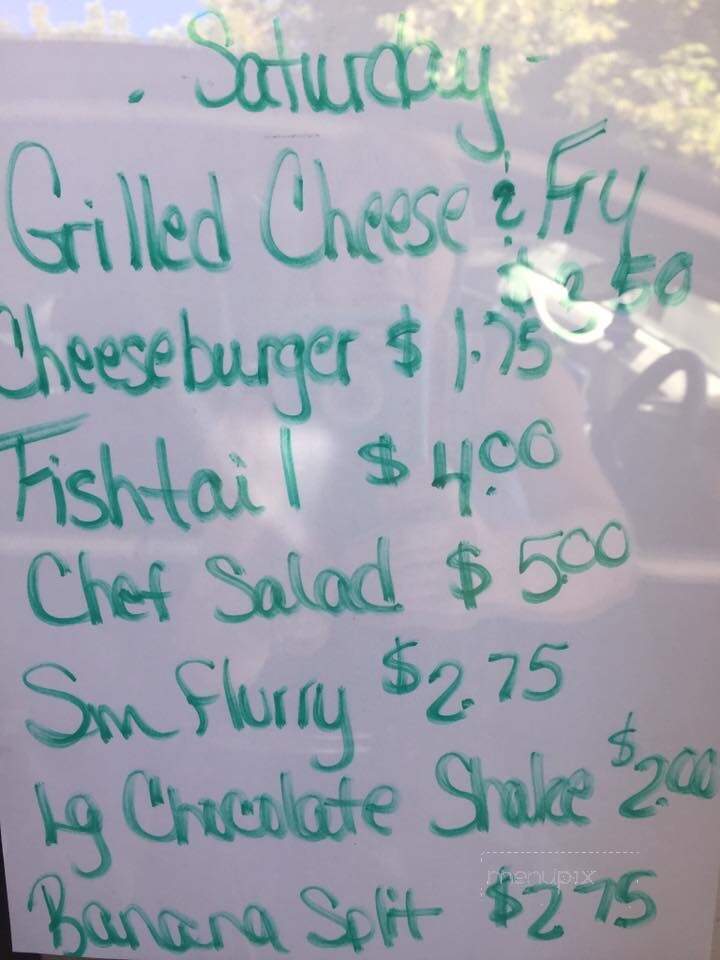 . Saturday -
Grilled Cheese & Fry
$2.50
Cheeseburger $1.75
Fishtail $4.00
Chef Salad $5.00
Sm Flurry $2.75
Lg Chocolate Shake $2.00
menupix
Banana Split $2.75